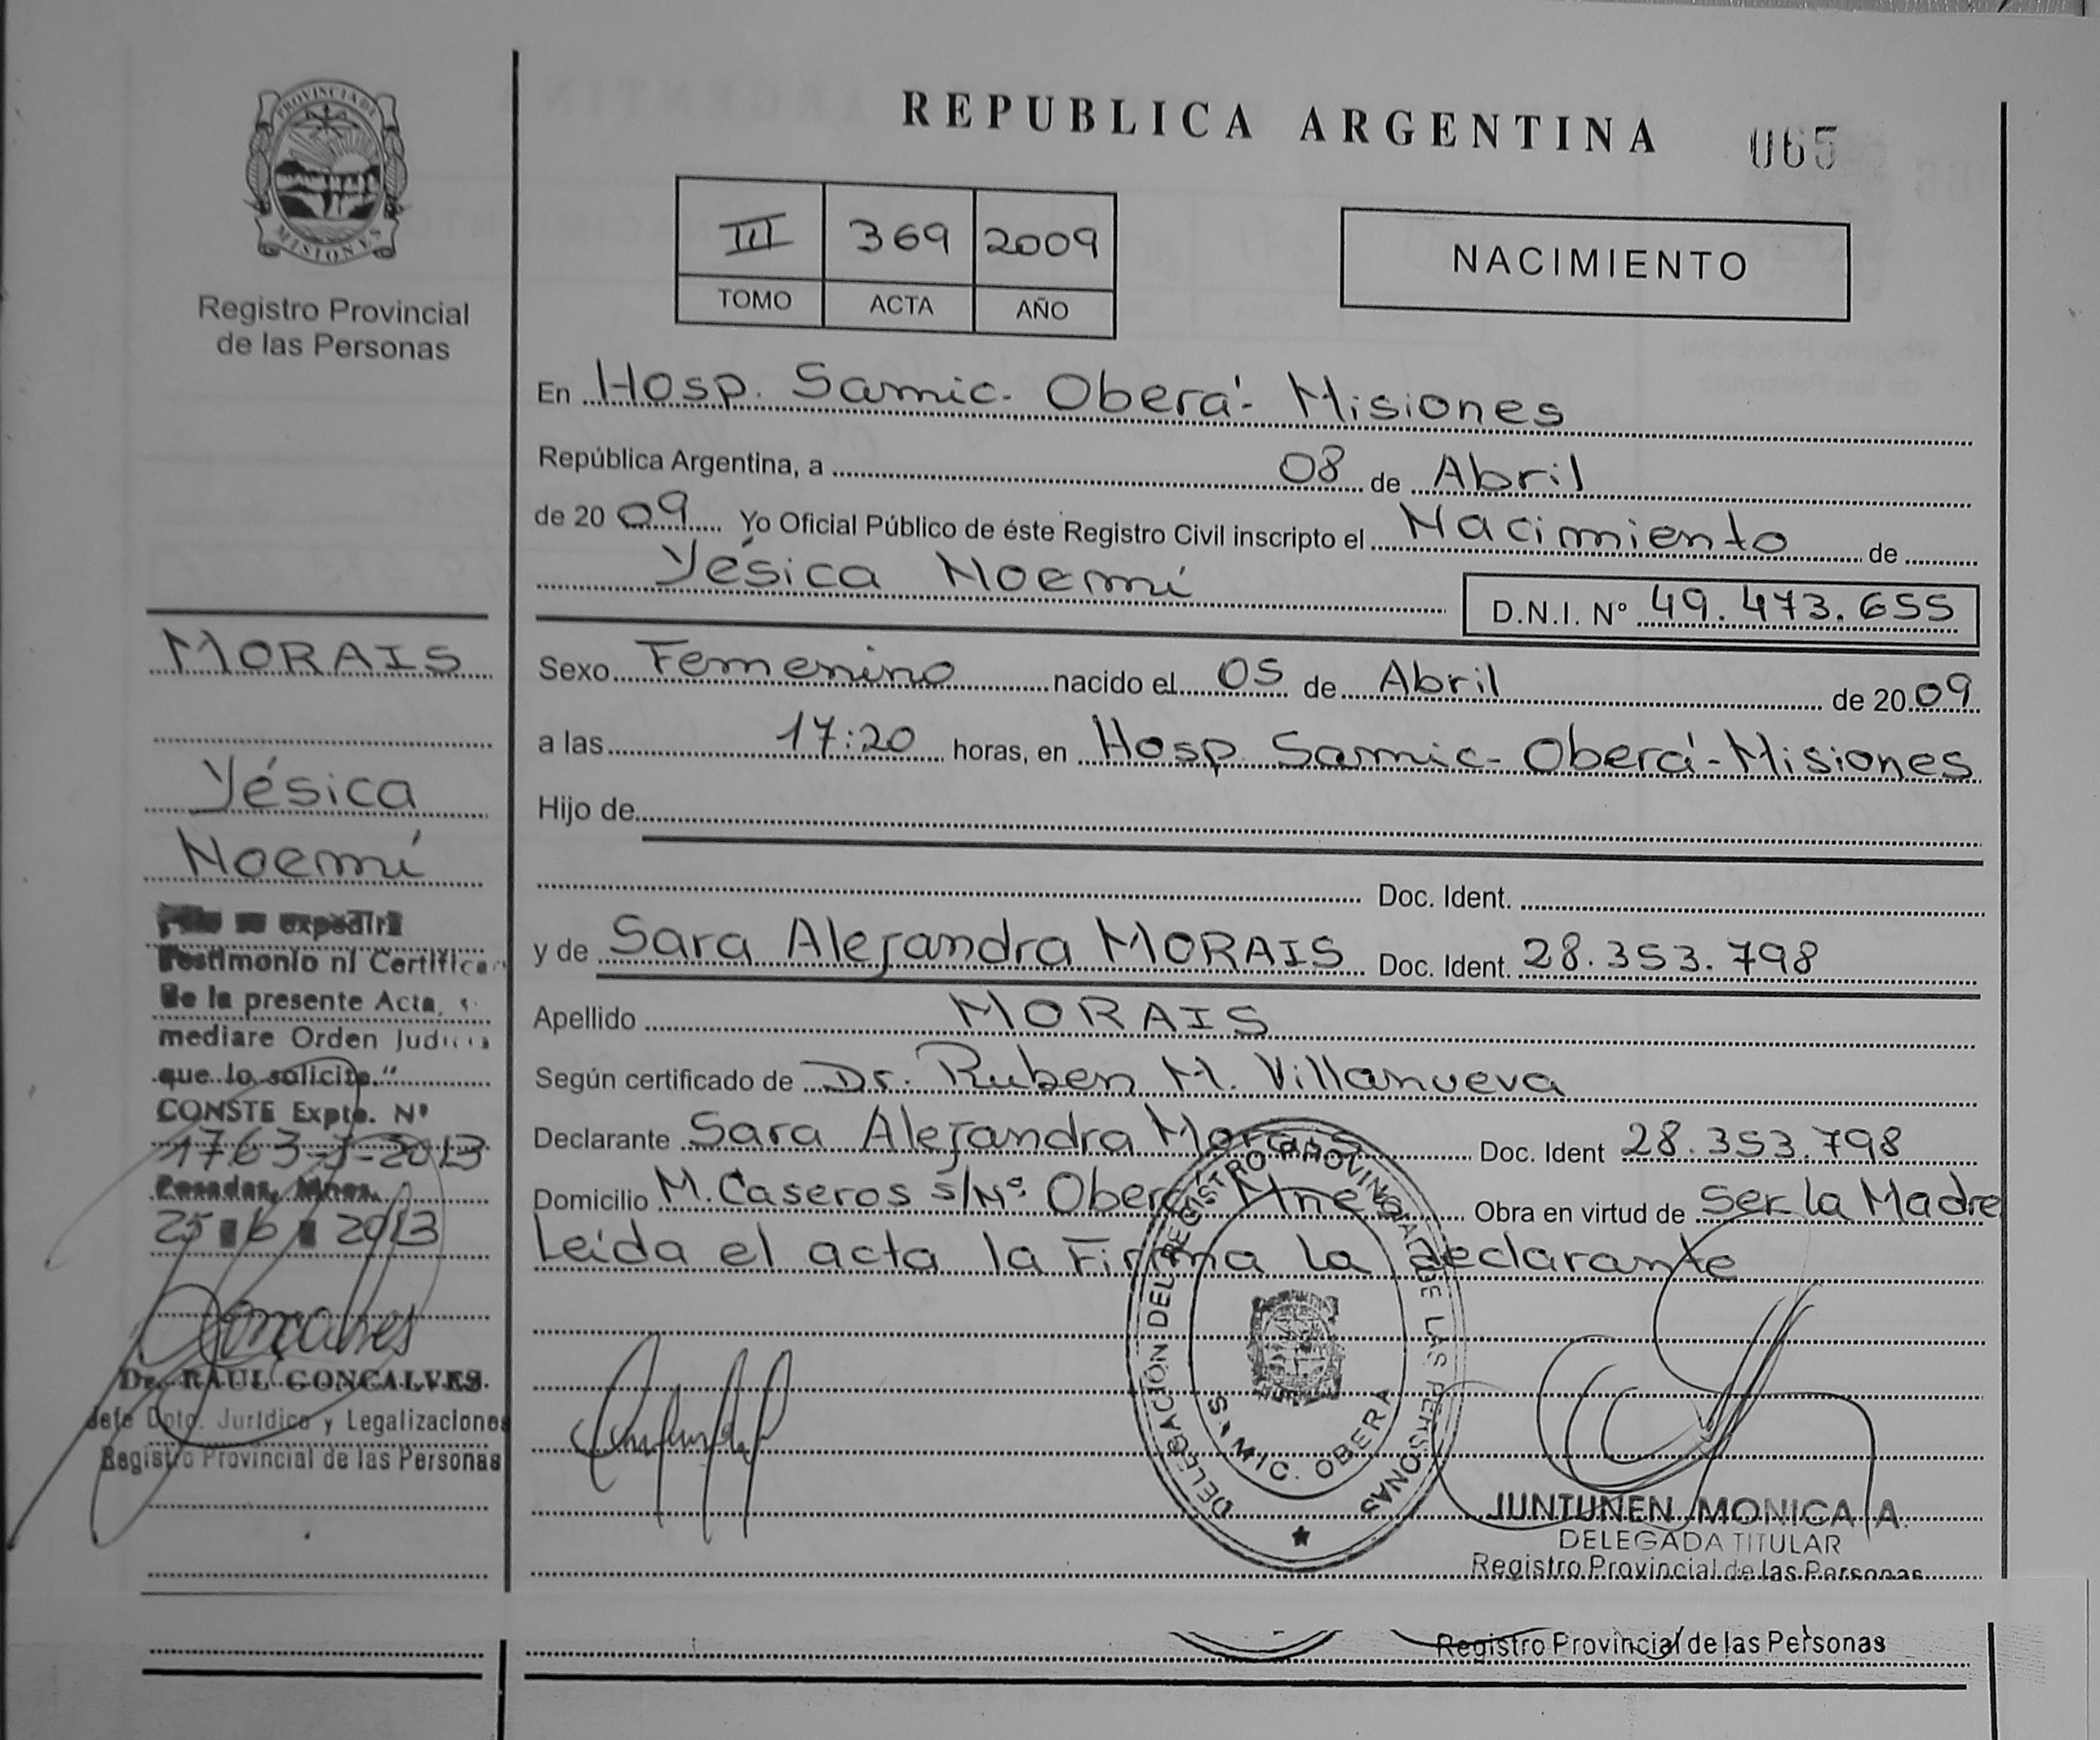 PROVINCIA DE
MISIONES
Registro Provincial
de las Personas
REPUBLICA ARGENTINA
065
III 369 2009
TOMO ACTA AÑO
NACIMIENTO
En Hosp. Samic- Oberá- Misiones
República Argentina, a 08 de Abril
de 2009 Yo Oficial Público de éste Registro Civil inscripto el Nacimiento de
Yésica Noemí
D.N.I. Nº 49.473.655
Sexo Femenino nacido el 05 de Abril de 2009
a las 17:20 horas, en Hosp. Samic- Oberá-Misiones
Hijo de
Doc. Ident.
y de Sara Alejandra MORAIS Doc. Ident. 28.353.798
Apellido MORAIS
Según certificado de Dr. Ruben M. Villanueva
Declarante Sara Alejandra Morais Doc. Ident 28.353.798
Domicilio M. Caseros s/Nº Oberá Mnes Obra en virtud de Ser la Madre
Leída el acta la Firma la declarante
MORAIS
Yésica
Noemí
se expedirá
Testimonio ni Certifica
de la presente Acta,
mediare Orden Judicia
que lo solicite."
CONSTE Expte. Nº
1763-J-2013
Posadas, Mnes.
25 6 2013
Dr. RAUL GONCALVES
Jefe Dpto. Jurídico y Legalizaciones
Registro Provincial de las Personas
DELEGACIÓN DEL REGISTRO PROVINCIAL DE LAS PERSONAS
SAMIC. OBERA
JUNTUNEN MONICA A.
DELEGADA TITULAR
Registro Provincial de las Personas
Registro Provincial de las Personas